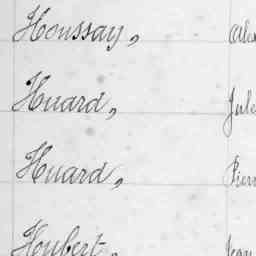 Houssay,
Huard, Jule
Huard, Pierr
Houbert, Jean